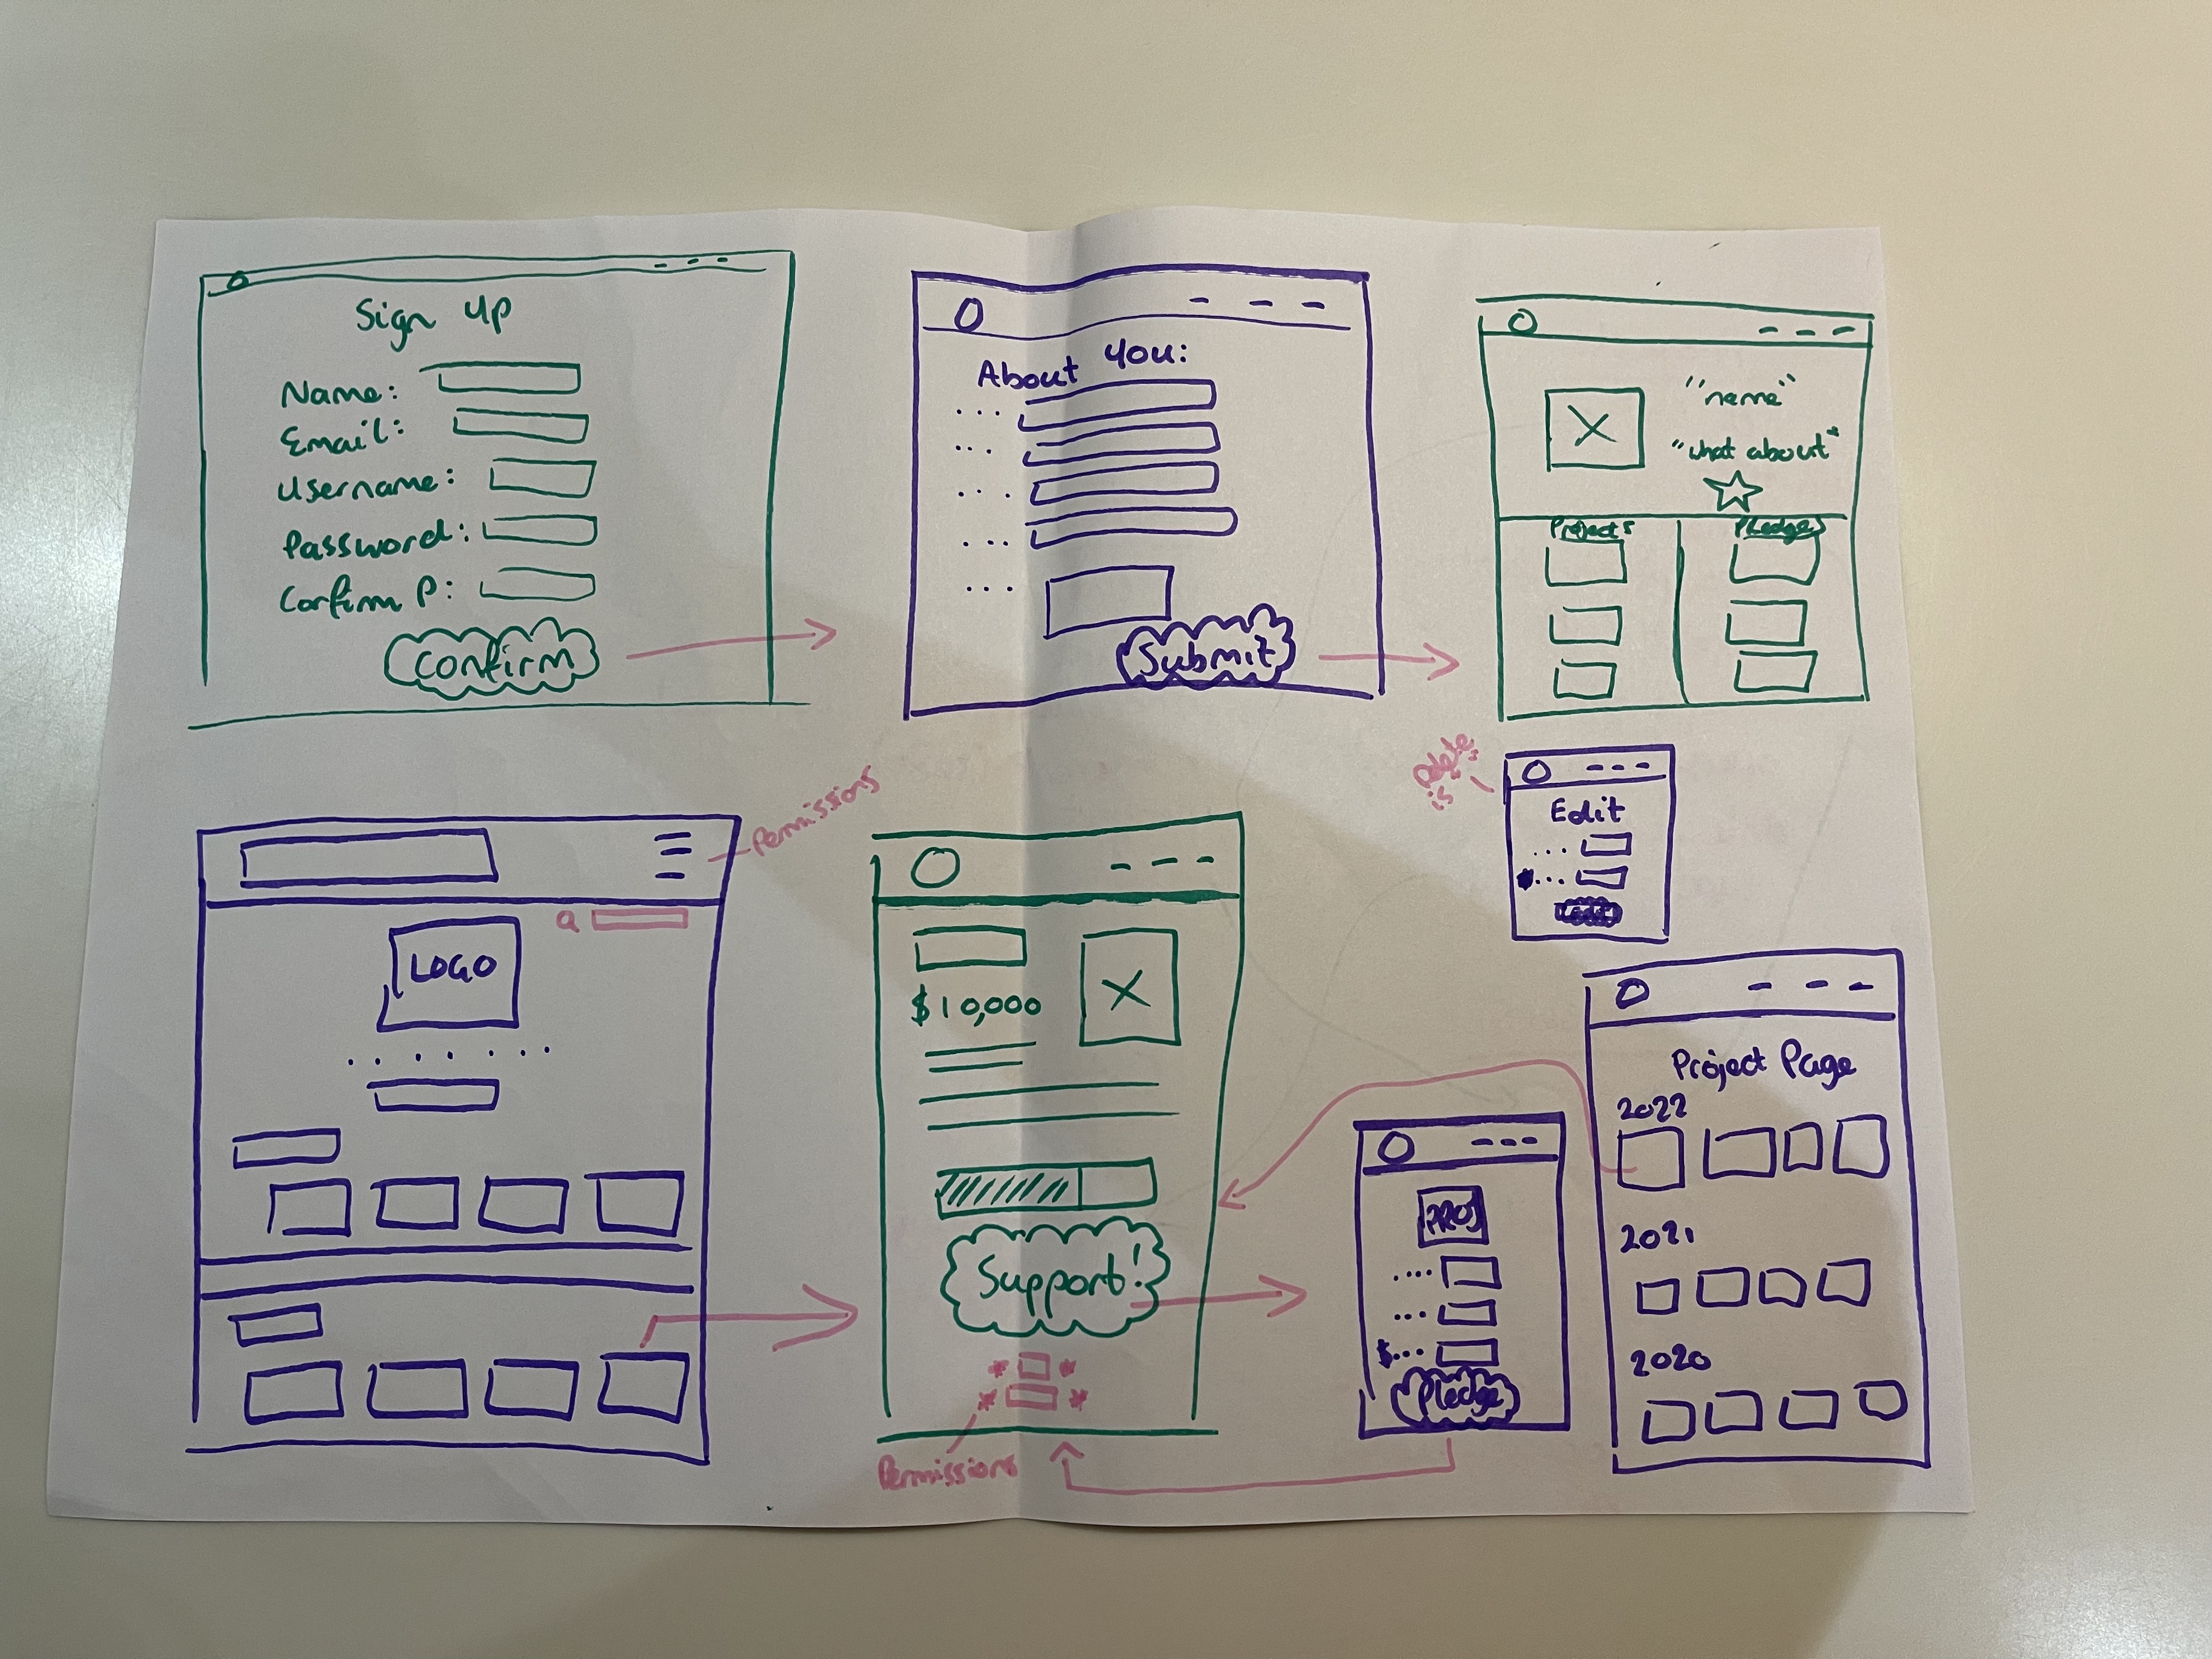 Sign up
Name:
Email:
Username:
Password:
Confirm P:
Confirm
About you:
Submit
"name"
"what about"
Projects
Pledges
Permissions
LOGO
$10,000
Support!
Permissions
Delete
is
Edit
PROJ
$...
Pledge
Project Page
2022
2021
2020